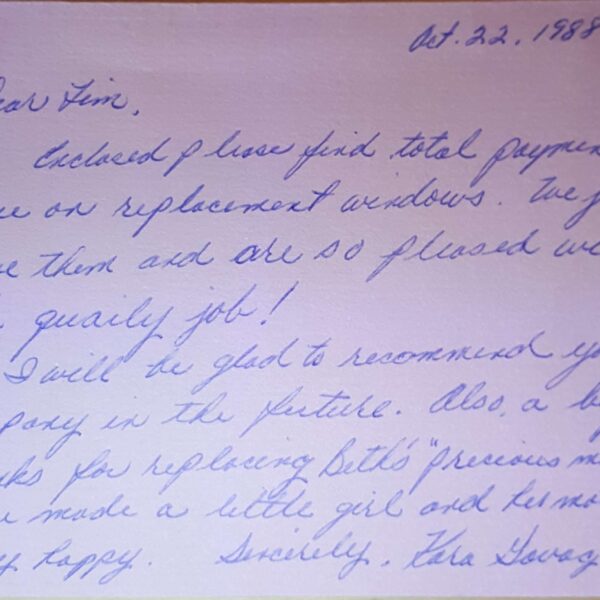 Oct. 22, 1988
ear Tim,
Enclosed please find total paymen
e on replacement windows. We j
e them and are so pleased w
quaily job!
I will be glad to recommend yo
pany in the future. Also, a b
ks for replacing Beth's "precious m
made a little girl and her mo
y happy. Sincerely, Kara